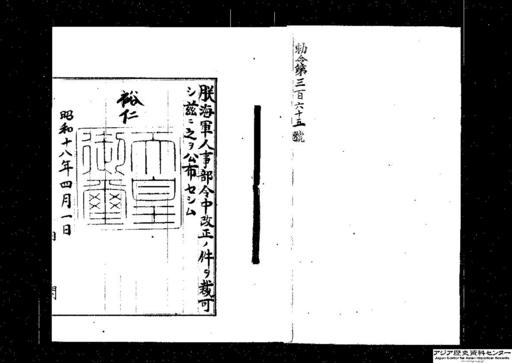 勅令第三百六十五號
朕海軍人事部令中改正ノ件ヲ裁可
シ玆ニ之ヲ公布セシム
裕仁
天皇御璽
昭和十八年四月一日
アジア歴史資料センター
Japan Center for Asian Historical Records